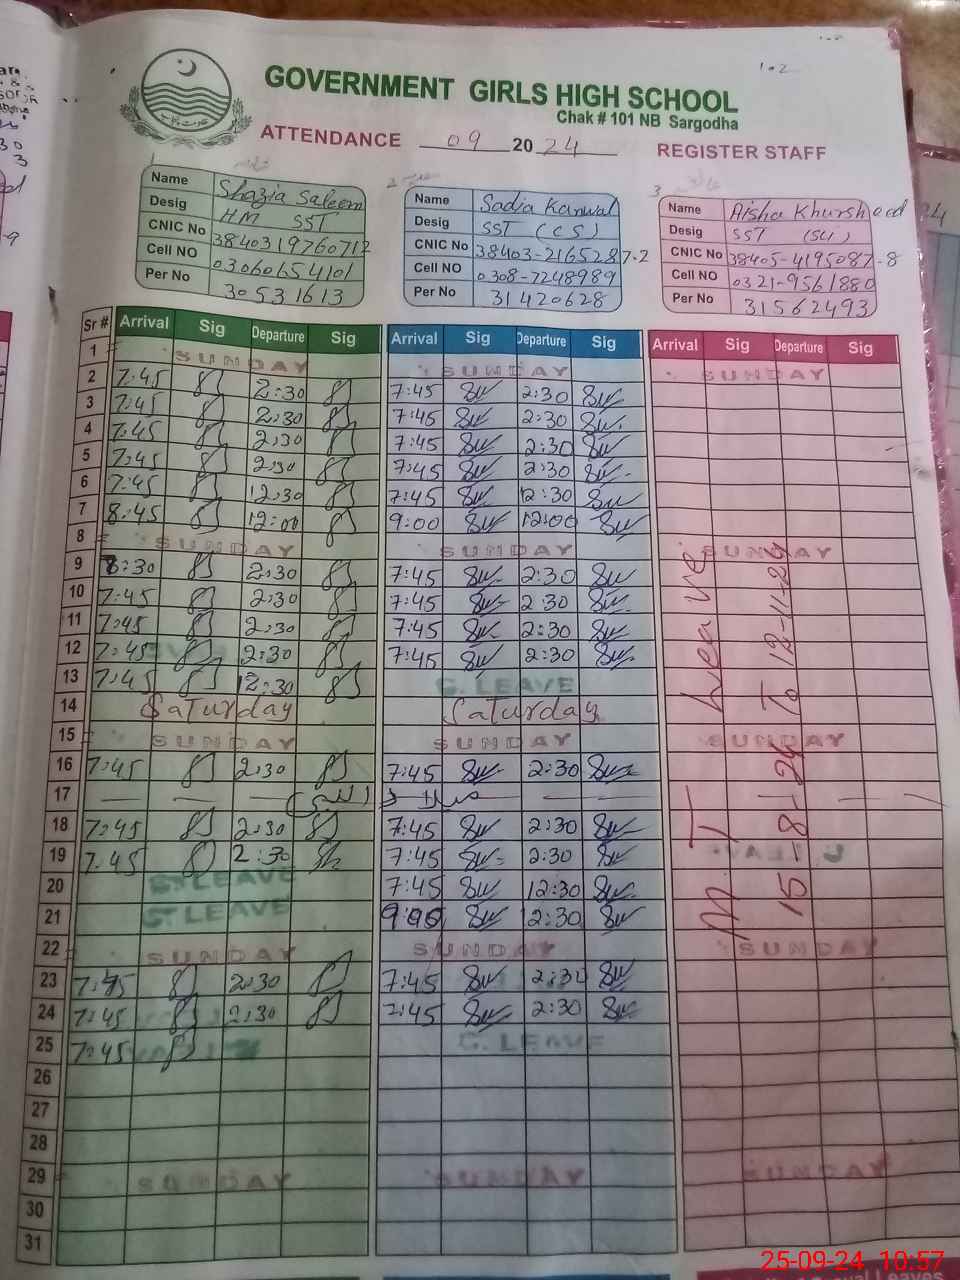 GOVERNMENT GIRLS HIGH SCHOOL
Chak # 101 NB Sargodha
ATTENDANCE 09 20 24 REGISTER STAFF
102
Name Shazia Saleem
Desig HM SST
CNIC No 3840319760712
Cell NO 03060654101
Per No 30531613
2
Name Sadia Kanwal
Desig SST (CS)
CNIC No 38403-2165287-2
Cell NO 0308-7248989
Per No 31420628
3
Name Aisha Khursheed
Desig SST
CNIC No 38405-4195087-8
Cell NO 0321-9561880
Per No 31562493
Sr # Arrival Sig Departure Sig Arrival Sig Departure Sig Arrival Sig Departure Sig
1 SUNDAY SUNDAY SUNDAY
2 7:45 2:30 7:45 2:30
3 7:45 2:30 7:45 2:30
4 7:45 2:30 7:45 2:30
5 7:45 2:30 7:45 2:30
6 7:45 12:30 7:45 12:30
7 8:45 12:00 9:00 12:00
8 SUNDAY SUNDAY SUNDAY
9 8:30 2:30 7:45 2:30
10 7:45 2:30 7:45 2:30
11 7:45 2:30 7:45 2:30
12 7:45 2:30 7:45 2:30
13 7:45 12:30 C. LEAVE
14 Saturday Saturday
15 SUNDAY SUNDAY SUNDAY
16 7:45 2:30 7:45 2:30
17
18 7:45 2:30 7:45 2:30
19 7:45 2:30 7:45 2:30
20 LEAVE 7:45 12:30
21 LEAVE 9:00 12:30
22 SUNDAY SUNDAY SUNDAY
23 7:45 2:30 7:45 2:30
24 7:45 2:30 7:45 2:30
25 7:45 C. LEAVE
26
27
28
29 SUNDAY SUNDAY SUNDAY
30
31
M T Leave
15-8-24 To 12-11-24
25-09-24 10:57